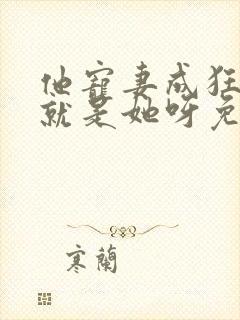 他寵妻成狂
就是她呀免
寒蘭